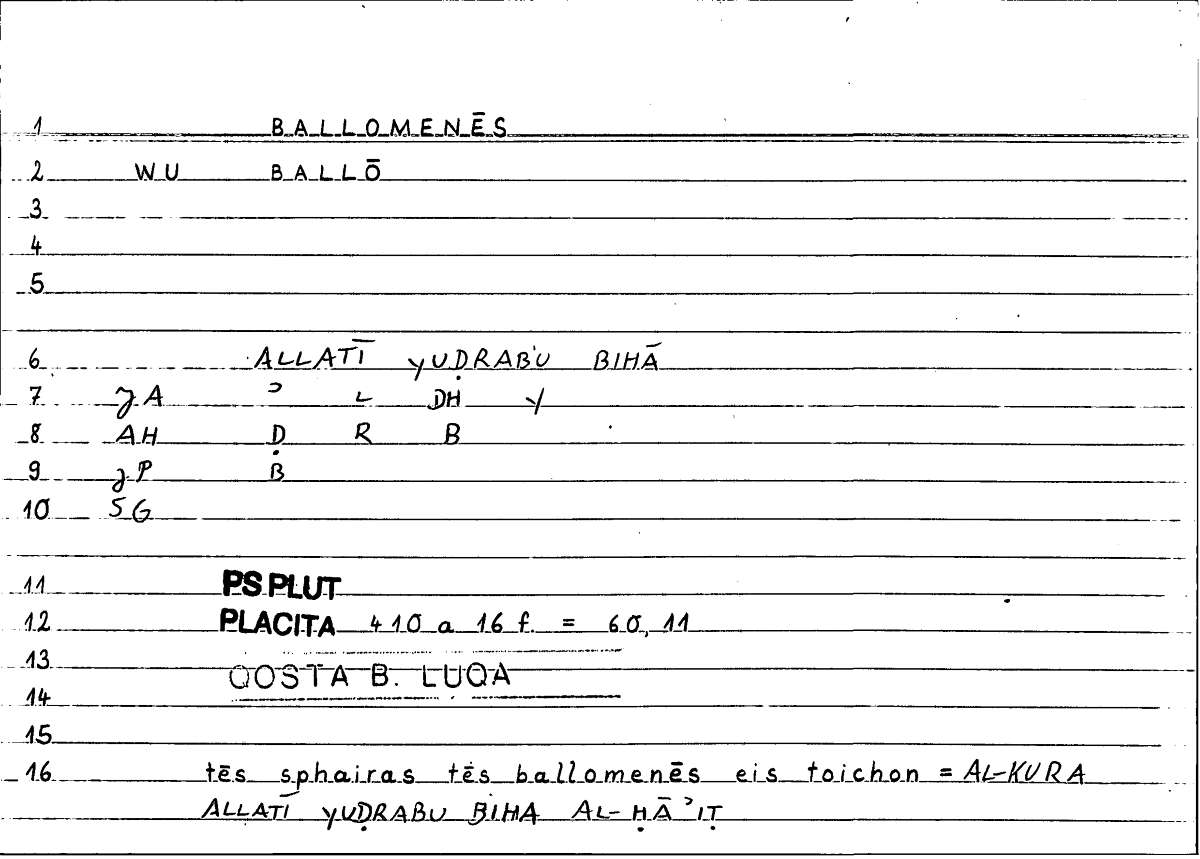 1 BALLOMENĒS
2 WU BALLŌ
3
4
5
6 ALLATĪ YUḌRABU BIHĀ
7 JA ʾ L DH Y
8 AH Ḍ R B
9 JP B
10 SG
11 PS PLUT
12 PLACITA 410 a 16 f. = 60,11
13 QOSTA B. LUQA
14
15
16 tēs sphairas tēs ballomenēs eis toichon = AL-KURA
ALLATĪ YUḌRABU BIHA AL-ḤĀʾIṬ